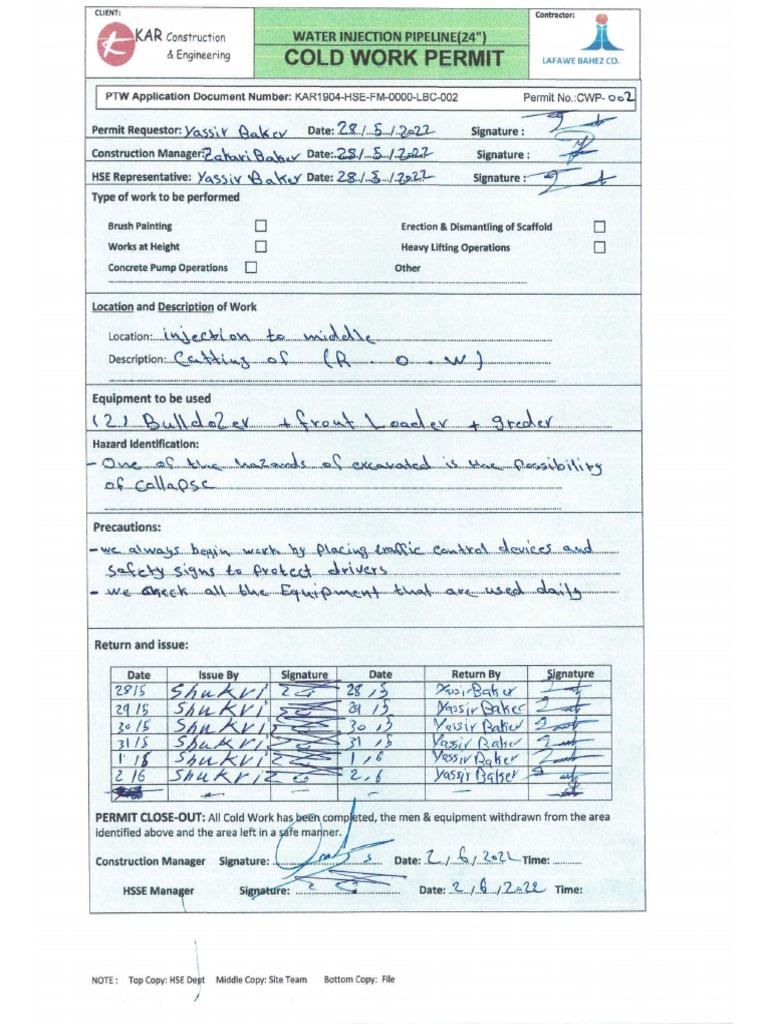 CLIENT:
KAR Construction
& Engineering
WATER INJECTION PIPELINE(24")
COLD WORK PERMIT
Contractor:
LAFAWE BAHEZ CO.
PTW Application Document Number: KAR1904-HSE-FM-0000-LBC-002 Permit No.:CWP-002
Permit Requestor: Yassir Baker Date: 28/5/2022 Signature :
Construction Manager: Zakari Baker Date: 28/5/2022 Signature :
HSE Representative: Yassir Baker Date: 28/5/2022 Signature :
Type of work to be performed
Brush Painting Erection & Dismantling of Scaffold
Works at Height Heavy Lifting Operations
Concrete Pump Operations Other
Location and Description of Work
Location: injection to middle
Description: Catting of (R.O.W)
Equipment to be used
(2) Bulldozer + front Loader + greder
Hazard Identification:
- One of the hazards of excavated is the possibility
of collapse
Precautions:
- we always begin work by placing traffic control devices and
safety signs to protect drivers
- we check all the Equipment that are used daily
Return and issue:
Date Issue By Signature Date Return By Signature
28/5 Shukri 28/5 Yassir Baker
29/5 Shukri 29/5 Yassir Baker
30/5 Shukri 30/5 Yassir Baker
31/5 Shukri 31/5 Yassir Baker
1/6 Shukri 1/6 Yassir Baker
2/6 Shukri 2/6 Yassir Baker
PERMIT CLOSE-OUT: All Cold Work has been completed, the men & equipment withdrawn from the area
identified above and the area left in a safe manner.
Construction Manager Signature: Date: 2/6/2022 Time:
HSSE Manager Signature: Date: 2/6/2022 Time:
NOTE : Top Copy: HSE Dept Middle Copy: Site Team Bottom Copy: File